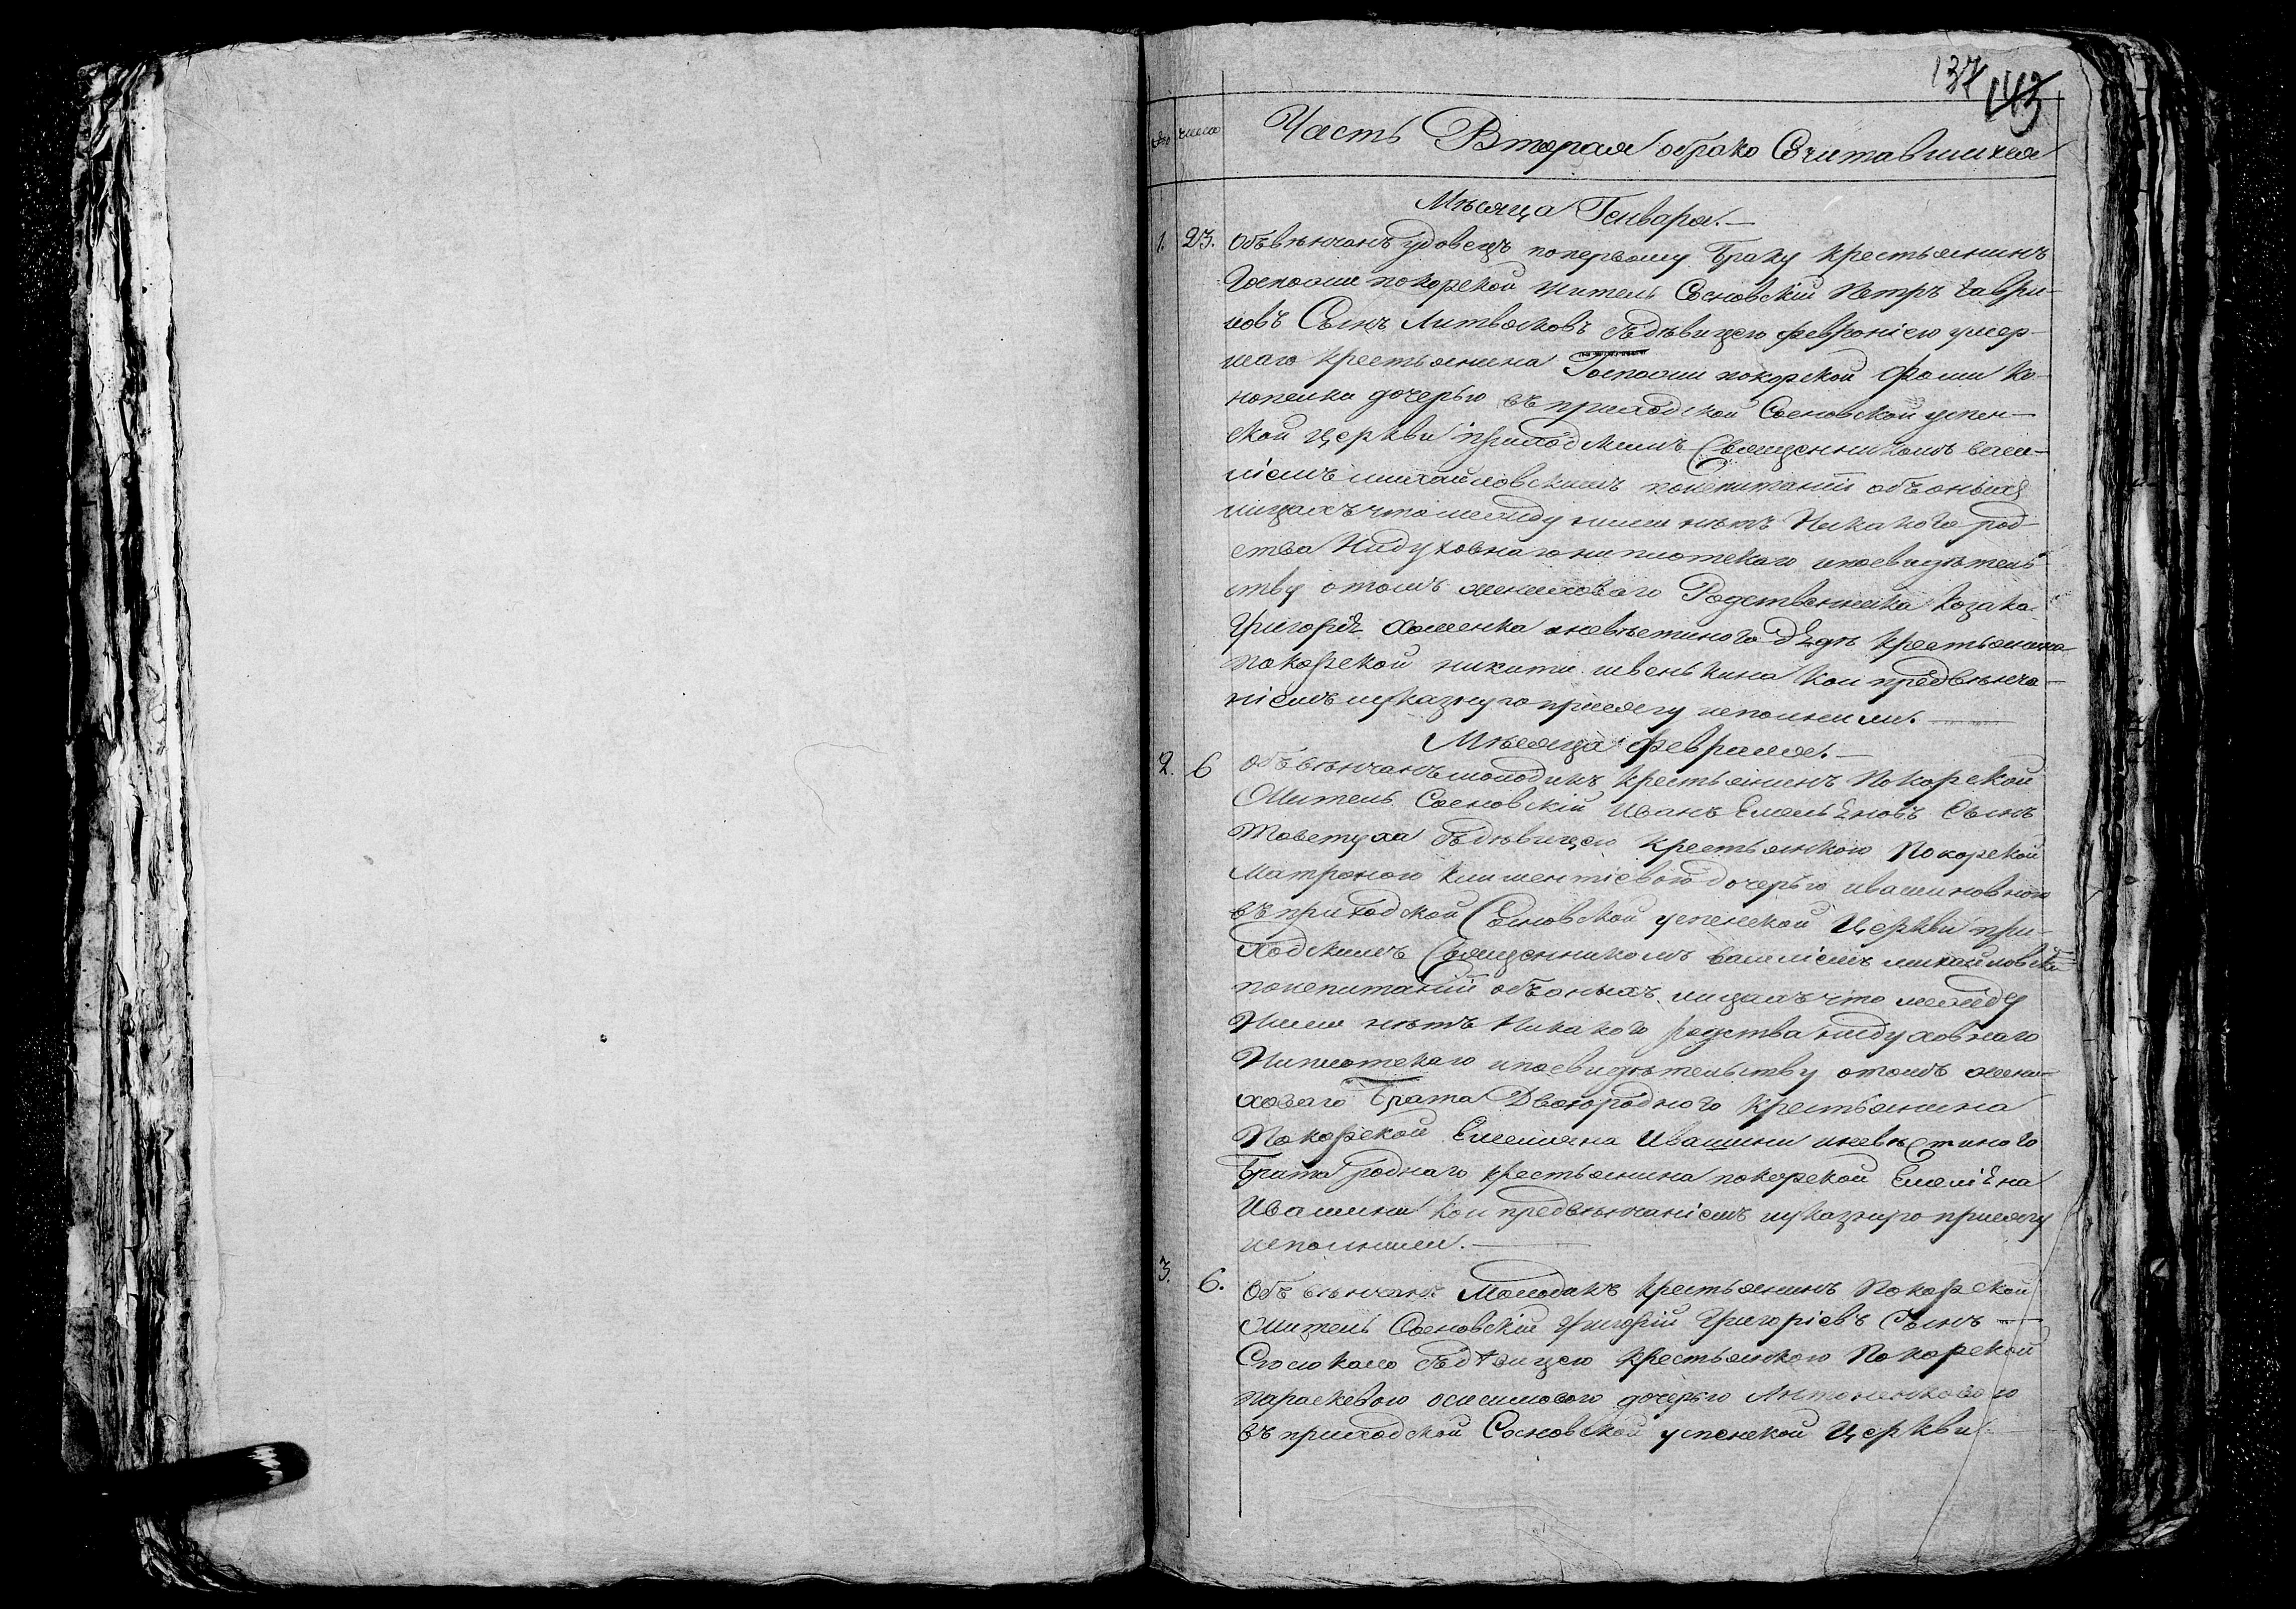 137 143
число
Часть Вторая обрако Сочитавшихся
Месяца Генваря.—
1. 23. Объвѣнчанъ удовецъ поперьвому Браку крестьянинъ
Госпожи покорской житель Сосновскій Петръ Гаври-
ловъ Сынъ Литвяковъ здѣвицею Февронією умер-
шаго крестьянина Госпожи покорской Фоми Ко-
нопелки дочерью въ приходской Сосновской успен-
ской церкви приходскимъ Священникомъ васи-
ліемъ михайловскимъ поиспитаніи объоныхъ
лицахъ что между ними нѣтъ Никакого род-
ства Нидуховнаго ни плотскаго ипосвидѣтель-
ству отомъ жениховаго Родственника козака
Григорія Хоменка иневѣстиного дядѣ крестьянина
покорской никити швенькина кои предвѣнча-
ніемъ указную присягу исполнили.
Мѣсяца февраля.—
2. 6 объвѣнчанъ молодикъ крестьянинъ Покорской
Житель Сосновскій Иванъ Емельяновъ Сынъ
Товстуха здѣвицею крестьянкою Покорской
Матроною климентіевою дочерью ивашиновною
въ приходской Сосновской успенской Церкви при-
ходскимъ Священникомъ василіемъ михайловски
поиспитаніи объоныхъ лицахъ что между
Ними нѣтъ Никакого родства нидуховнаго
Ниплотскаго ипосвидѣтельству отомъ жени-
ховаго Брата Двоюродного крестьянина
Покорской Емелияна Ивашини иневѣстиного
Брата роднаго крестьянина покорской Емеліяна
Ивашини кои предвѣнчаніемъ указную присягу
исполнили.
3. 6. Объвѣнчанъ Молодикъ крестьянинъ Покорской
житель Сосновскій Григорій Григоріевъ Сынъ
здѣвицею крестьянкою Покорской
параскевою онисимовою дочерью Антоненковою
въ приходской Сосновской успенской Церкви